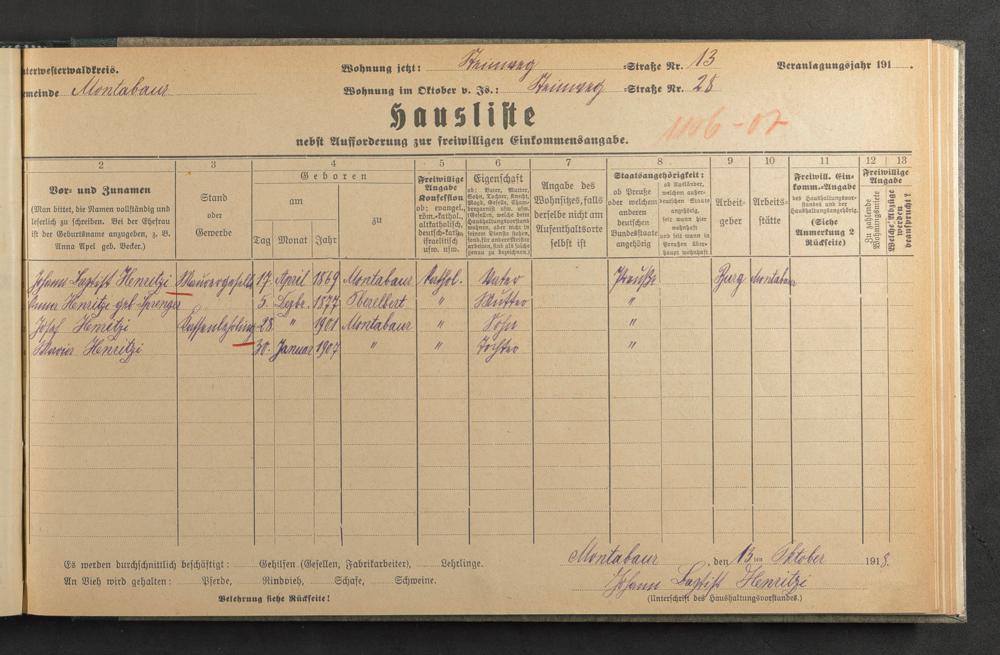 nterwesterwaldkreis.
Wohnung jetzt: Steinweg =Straße Nr. 13
Veranlagungsjahr 191 .
emeinde Montabaur
Wohnung im Oktober v. Js.: Steinweg =Straße Nr. 28
Hausliste
1106-07
nebst Aufforderung zur freiwilligen Einkommensangabe.
2 3 4 5 6 7 8 9 10 11 12 13
Vor= und Zunamen
(Man bittet, die Namen vollständig und
leserlich zu schreiben. Bei der Ehefrau
ist der Geburtsname anzugeben, z. B.
Anna Apel geb. Becker.)
Stand
oder
Gewerbe
Geboren
am
zu
Tag Monat Jahr
Freiwillige
Angabe
Konfession
ob: evangel.,
röm.=kathol.,
altkatholisch,
deutsch=kath.,
israelitisch
usw. usw.
Eigenschaft
ob: Vater, Mutter,
Sohn, Tochter, Knecht,
Magd, Geselle,
Angabe des
Wohnsitzes, falls
derselbe nicht am
Aufenthaltsorte
selbst ist
Staatsangehörigkeit:
ob Preuße
oder welchem
anderen
deutschen
Bundesstaate
angehörig
ob Ausländer,
welchem außer=
deutschen Staate
angehörig,
seit wann in
Preußen über=
haupt wohnhaft
Arbeit=
geber
Arbeits=
stätte
Freiwill. Ein=
komm.=Angabe
des Haushaltungsvor=
standes und der
Haushaltungsangehörig.
(Siehe
Anmerkung 2
Rückseite)
Freiwillige
Angabe
Zu zahlende
Wohnungsmiete
Welche Abzüge
werden
beansprucht?
Johann Baptist Henritzi Maurergeselle 17. April 1869 Montabaur Kathol. Vater Preuße Burg Montabaur
Henritzi geb. Sprenger 5. Septbr. 1877 Oberelbert " Mutter "
Josef Henritzi 28. " 1901 Montabaur " Sohn "
Maria Henritzi 30. Januar 1907 " " Tochter "
Es werden durchschnittlich beschäftigt: Gehilfen (Gesellen, Fabrikarbeiter), Lehrlinge.
An Vieh wird gehalten: Pferde, Rindvieh, Schafe, Schweine.
Belehrung siehe Rückseite!
Montabaur, den 13ten Oktober 1918.
Johann Baptist Henritzi
(Unterschrift des Haushaltungsvorstandes.)